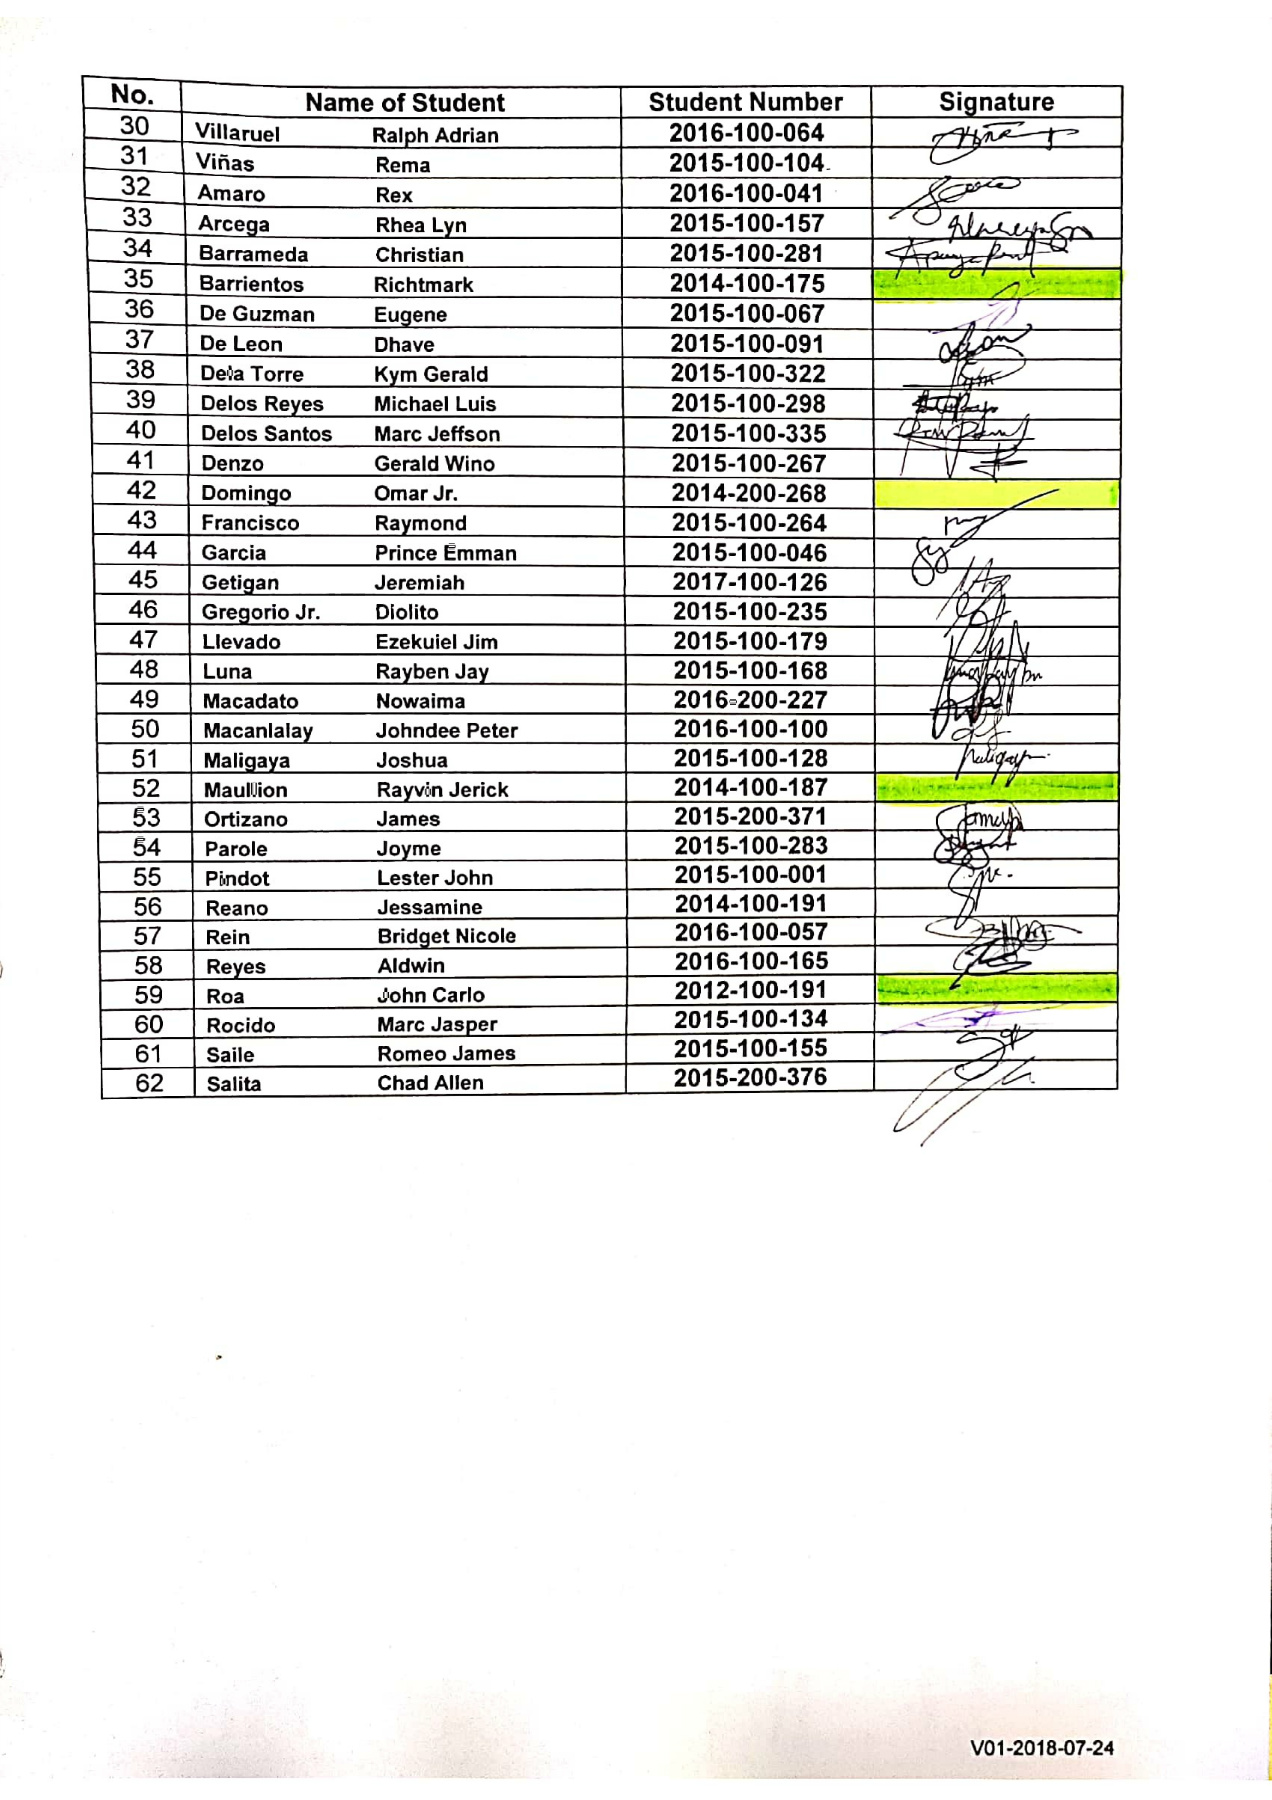 No. Name of Student Student Number Signature
30 Villaruel Ralph Adrian 2016-100-064
31 Viñas Rema 2015-100-104
32 Amaro Rex 2016-100-041
33 Arcega Rhea Lyn 2015-100-157
34 Barrameda Christian 2015-100-281
35 Barrientos Richtmark 2014-100-175
36 De Guzman Eugene 2015-100-067
37 De Leon Dhave 2015-100-091
38 Dela Torre Kym Gerald 2015-100-322
39 Delos Reyes Michael Luis 2015-100-298
40 Delos Santos Marc Jeffson 2015-100-335
41 Denzo Gerald Wino 2015-100-267
42 Domingo Omar Jr. 2014-200-268
43 Francisco Raymond 2015-100-264
44 Garcia Prince Emman 2015-100-046
45 Getigan Jeremiah 2017-100-126
46 Gregorio Jr. Diolito 2015-100-235
47 Llevado Ezekuiel Jim 2015-100-179
48 Luna Rayben Jay 2015-100-168
49 Macadato Nowaima 2016-200-227
50 Macanlalay Johndee Peter 2016-100-100
51 Maligaya Joshua 2015-100-128
52 Maullion Rayvin Jerick 2014-100-187
53 Ortizano James 2015-200-371
54 Parole Joyme 2015-100-283
55 Pindot Lester John 2015-100-001
56 Reano Jessamine 2014-100-191
57 Rein Bridget Nicole 2016-100-057
58 Reyes Aldwin 2016-100-165
59 Roa John Carlo 2012-100-191
60 Rocido Marc Jasper 2015-100-134
61 Saile Romeo James 2015-100-155
62 Salita Chad Allen 2015-200-376
V01-2018-07-24